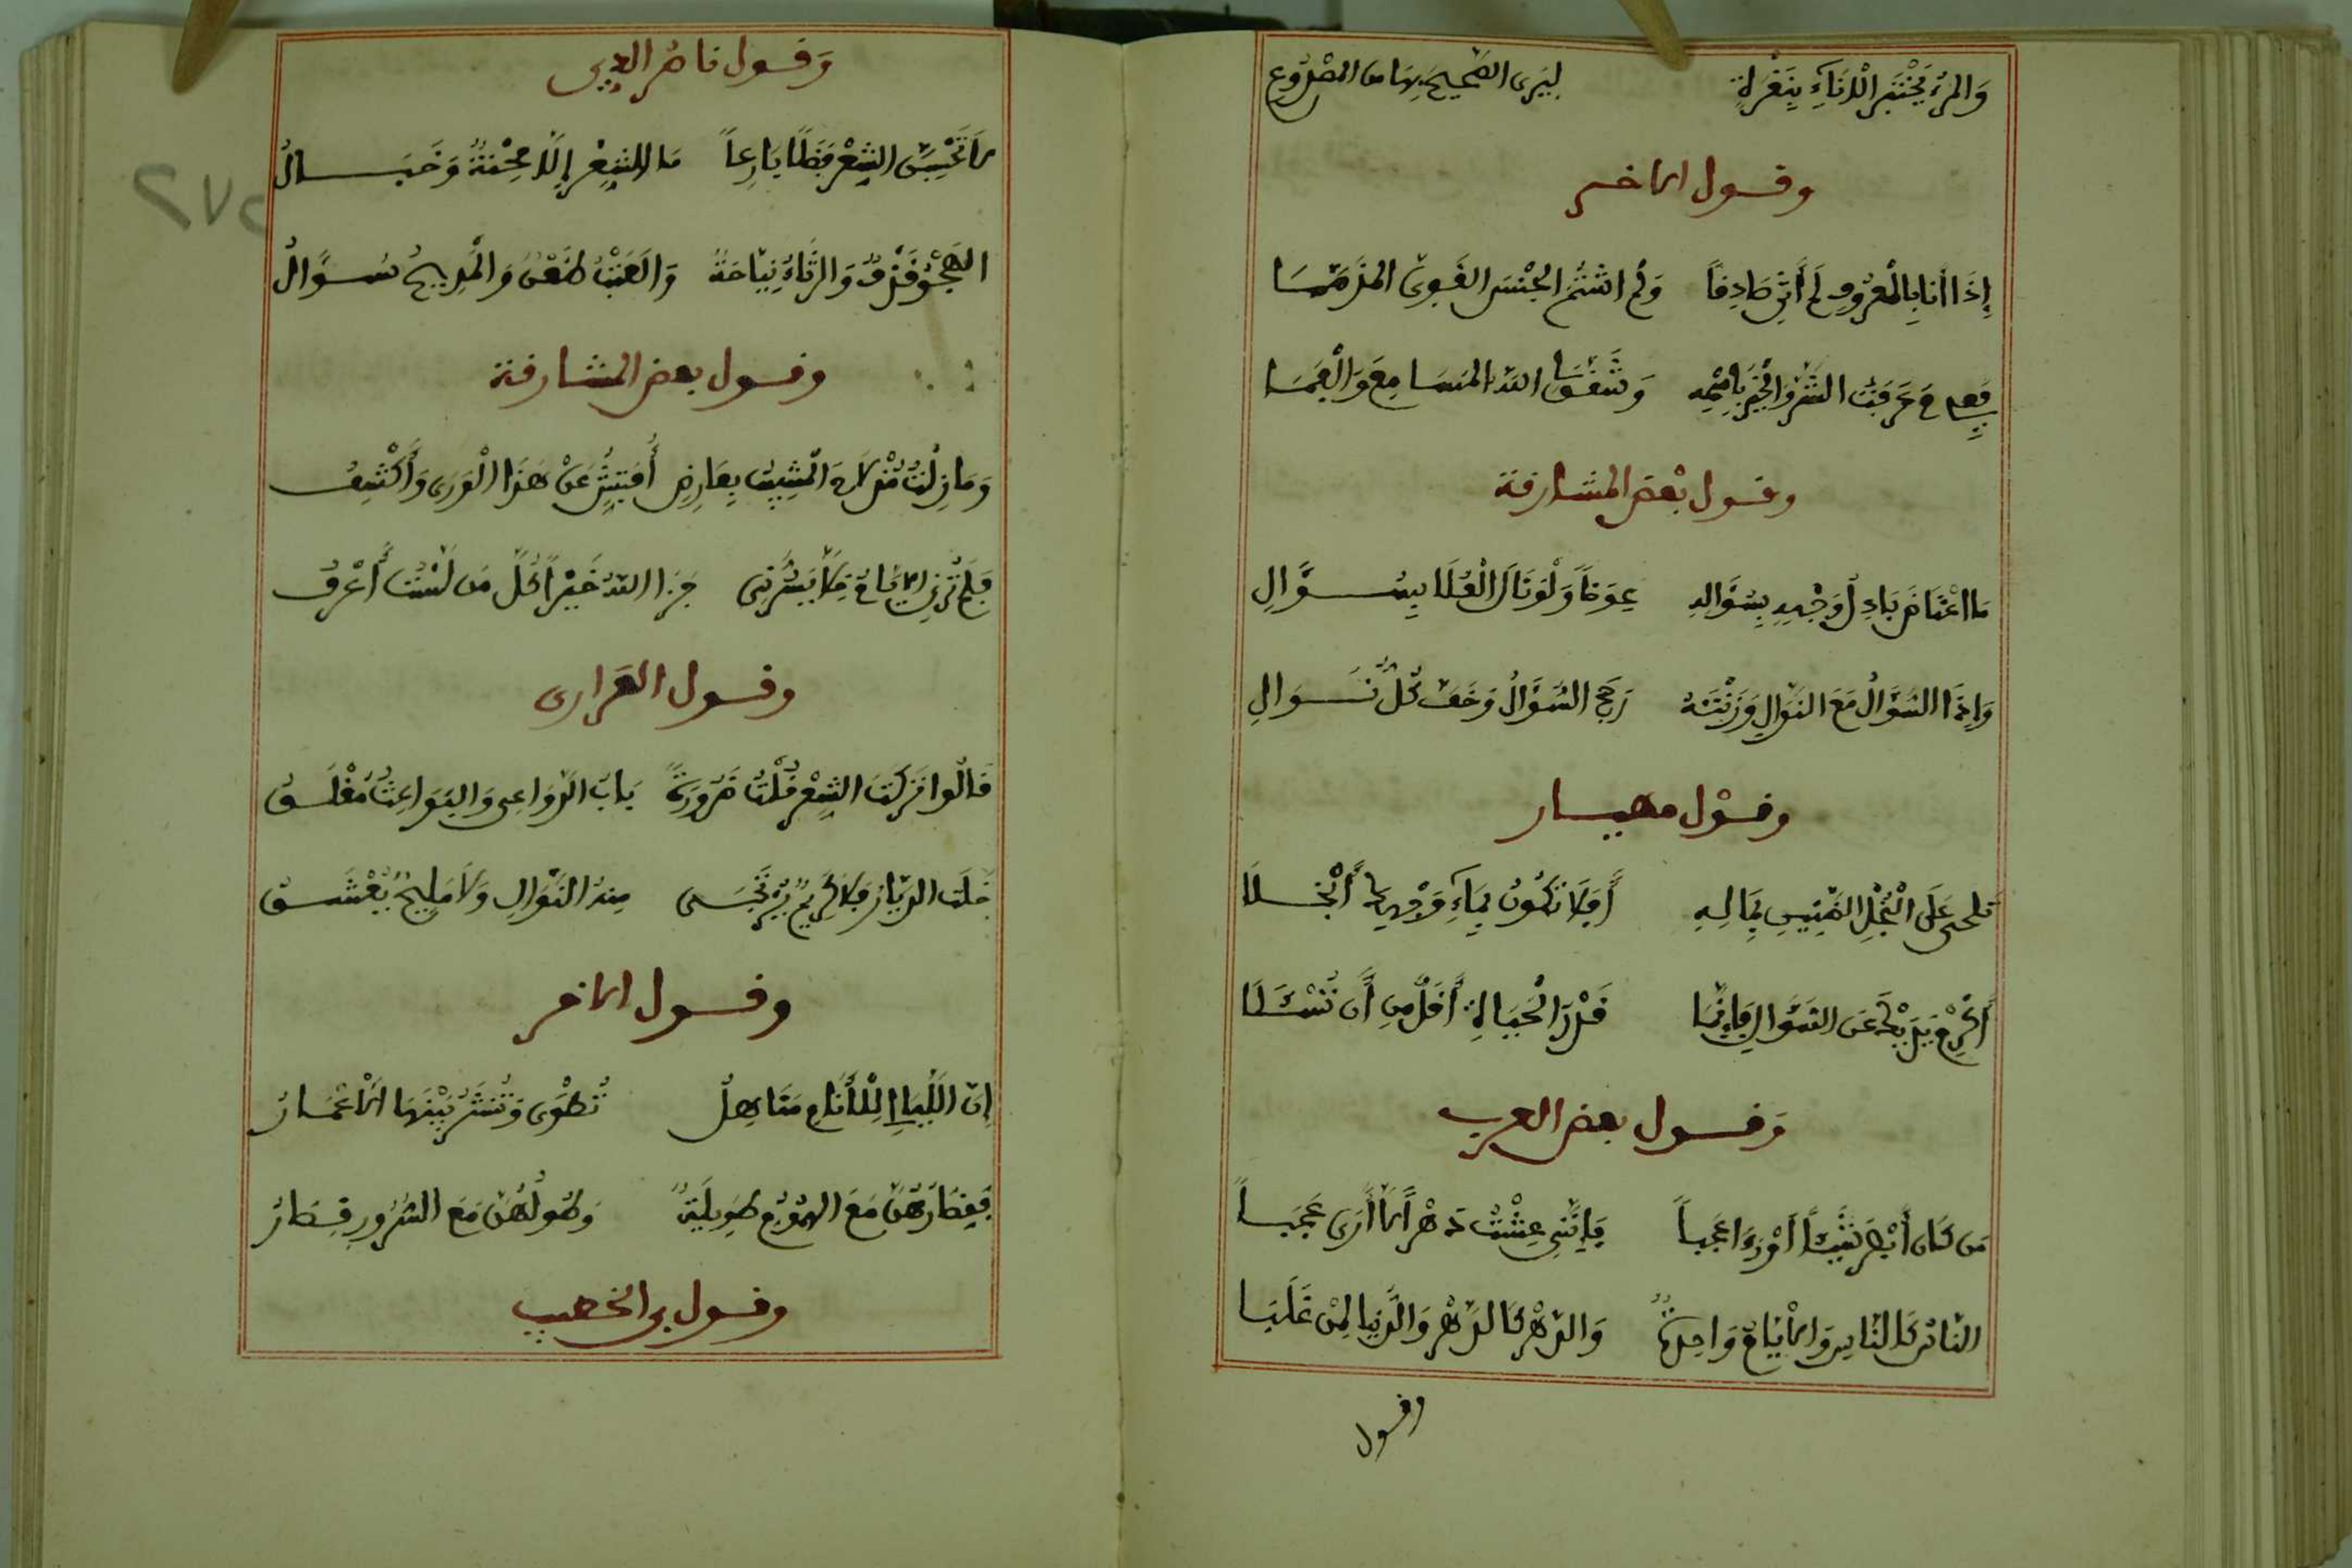 وَالمَرْءُ يَخْتَبِرُ الْإِنَاءَ بِنَقْرَةٍ لِيَرَى الصَّحِيحَ بِهَا من المصْدُوعِ
وقول الاخر
إِذَا أنا بِالمَعْرُوفِ لَم أُثْنِ صَادِقاً وَلَم اشْتُمِ الجِبْسَ اللَّئِيمَ المذَمَّمَا
فَفِيمَ عَرَفْتُ الشَّرَّ وَالْخَيْرَ بِاسْمِهِ وَشَقَّ لِيَ اللَّهُ المَسَامِعَ وَالْفَمَا
وقول بَعْضِ المشارقة
مَا اعْتَاضَ بَاذِلُ وَجْهِهِ بِسُؤَالِهِ عِوَضاً وَلَوْ نَالَ الْعُلَا بِسُؤَالِ
وَإِذَا السُّؤَالُ مَعَ النَّوَالِ وَزَنْتَهُ رَجَحَ السُّؤَالُ وَخَفَّ كُلُّ نَوَالِ
وقوْل مهيار
تلحى عَلَى الْبُخْلِ الشَّحِيحَ بِمَالِهِ أَفَلَا تَكُونُ بِمَاءِ وَجْهِكَ أَبْخَلَا
أَكْرِمْ يَدَيْكَ عَنِ السُّؤَالِ فَإِنَّمَا قَدْرُ الْحَيَاةِ أَقَلُّ مِن أَن تُسْئَلَا
وَقول بعض العرب
مَن كَان أَبْصَرَ شَيْئاً أَوْ رَءَا عَجَباً فَإِنَّنِي عِشْتُ دَهْراً لَا أَرَى عَجَبَاً
النَّاسُ كَالنَّاسِ وَالأَيَّامُ وَاحِدَةٌ وَالدَّهْرُ كَالدَّهْرِ وَالدُّنْيَا لِمَنْ غَلَبَا
وقول
وَقول ناصر الدين
لَا تَحْسِبَنَّ الشِّعْرَ فَضْلًا بَارِعاً مَا الشِّعْرُ إِلَّا مِحْنَةٌ وَخَبَالُ
الهَجْوُ قَذْفٌ وَالرِّثَاءُ نِيَاحَةٌ وَالعَتْبُ ضَغْنٌ وَالْمَدِيحُ سُؤَالُ
وقول بعض المشارقة
وَمَا زِلْتُ مُذْ لَاحَ الْمَشِيبُ بِعَارِضِي أُفَتِّشُ عَنْ هَذَا الْوَرَى وَأَكْشِفُ
فَلَم تُرِنِي الأَيَّامُ خِلًّا يَسُرُّنِي جَزَا اللَّهُ خَيْراً كُلَّ مَن لَسْتُ أَعْرِفُ
وقول
قَالُوا تَرَكْتَ الشِّعْرَ قُلْتُ ضَرُورَةً بَابُ الدَّوَاعِي وَالبَوَاعِثِ مُغْلَقُ
خَلَتِ الدِّيَارُ فَلَا كَرِيمٌ يُرْتَجَى مِنْهُ النَّوَالُ وَلَا مَلِيحٌ يُعْشَقُ
وقول الاخر
إِنَّ اللَّيَالِي لِلْأَنَامِ مَنَاهِلُ تُطْوَى وَتُنشَرُ بَيْنَهَا الأَعْمَارُ
فَقِصَارُهُنَّ مَعَ الهُمُومِ طَوِيلَةٌ وَطُولُهُنَّ مَعَ السُّرُورِ قِصَارُ
وقول بن الخطيب
٢٧٢